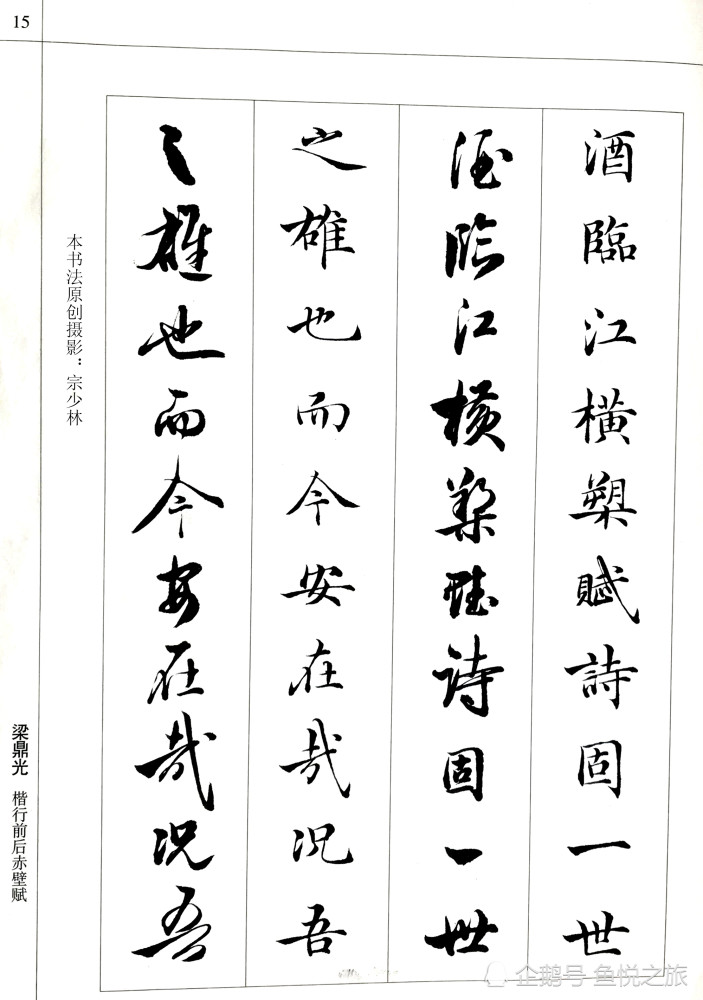 15
酒臨江橫槊賦詩固一世
酒臨江橫槊賦詩固一世
之雄也而今安在哉況吾
之雄也而今安在哉況吾
本书法原创摄影：宗少林
梁鼎光 楷行前后赤壁赋
企鹅号 鱼悦之旅